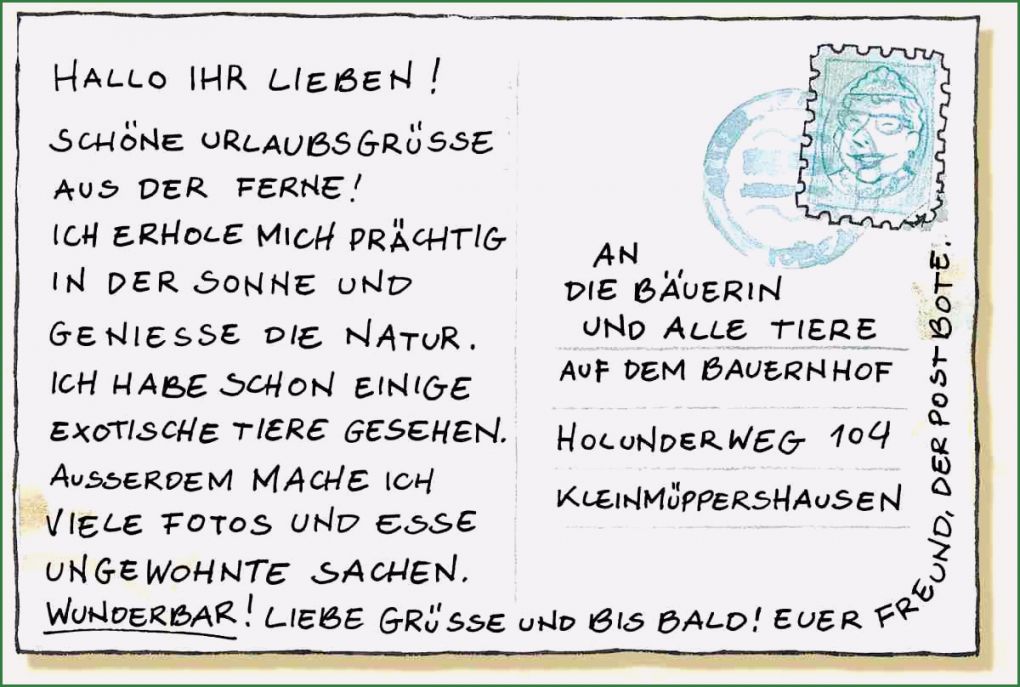 HALLO IHR LIEBEN!
SCHÖNE URLAUBSGRÜSSE
AUS DER FERNE!
ICH ERHOLE MICH PRÄCHTIG
IN DER SONNE UND
GENIESSE DIE NATUR.
ICH HABE SCHON EINIGE
EXOTISCHE TIERE GESEHEN.
AUSSERDEM MACHE ICH
VIELE FOTOS UND ESSE
UNGEWOHNTE SACHEN.
WUNDERBAR! LIEBE GRÜSSE UND BIS BALD! EUER FREUND, DER POSTBOTE.
AN
DIE BÄUERIN
UND ALLE TIERE
AUF DEM BAUERNHOF
HOLUNDERWEG 104
KLEINMÜPPERSHAUSEN